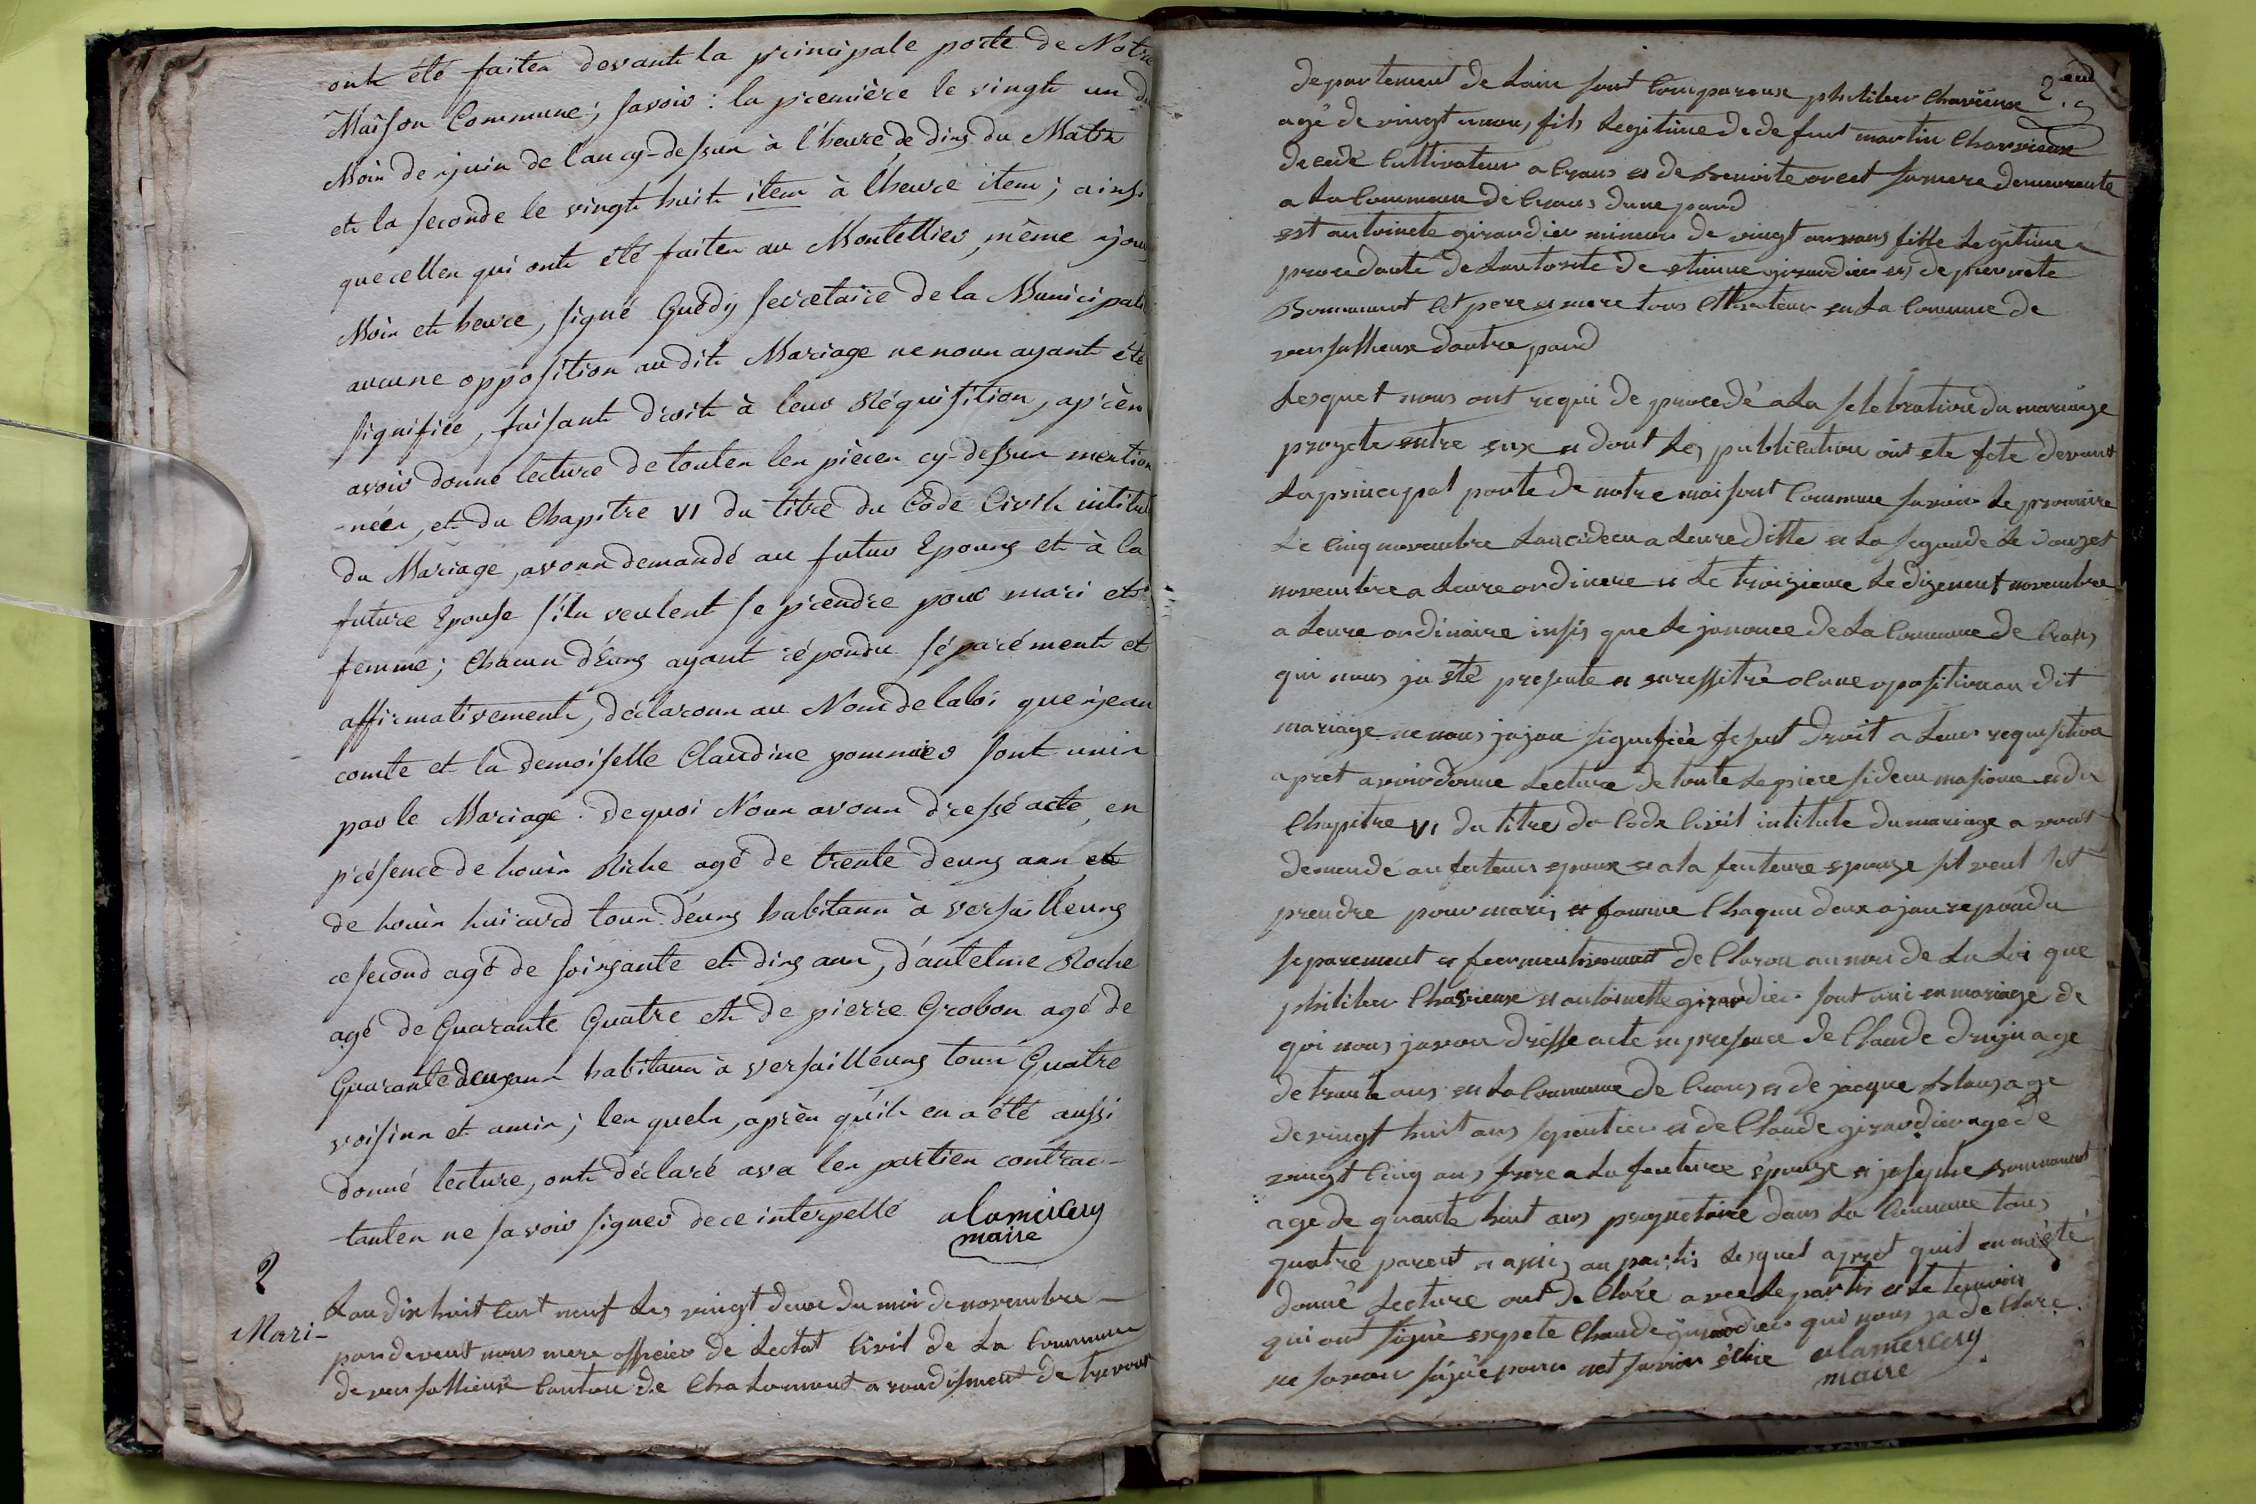 ont été faiten devant la principale porte de Notre
Maison Commune; savoir: la première le vingt un du
Moin de juin de l'an cy-dessun à l'heure de dix du Matin
et la seconde le vingt huit item à l'heure item; ainsi
que cellen qui ont été faiten au Montellier, même jour
Moin et heure, signé Guèdy secretaire de la Municipali
aucune opposition au dit Mariage ne noun ayant été
signifiée, faisant droit à leur Réquisition, aprèn
avoir donné lecture de touten len piècen cy-dessun mention
-néen, et du Chapitre VI du titre du Code Civil intitul
du Mariage, avonn demandé au futur Epoux et à la
future Epouse s'iln veulent se prendre pour mari et
femme; chacun d'Eux ayant répondu séparément et
affirmativement, déclaronn au Nom de la loi que jean
comte et la demoiselle Claudine pommier sont unin
par le Mariage. de quoi Noun avonn dressé acte, en
présence de louin Riche agé de trente deux ann et
de louin huicard toun deux habitann à versailleux
ce second agé de soixante et dix ann, d'antelme Roche
agé de Quarante Quatre et de pierre Grobon agé de
Quarante deux ann habitann à versailleux toun Quatre
voisinn et amin; len queln, aprèn qu'il en a été aussi
donné lecture, ont déclaré avec len partien contrac-
-tanten ne savoir signer de ce interpellé alamercery
maire
2
Mari-
Lan dix huit cent neuf Les vingt deux du moi de novembre
par devent nous mere officier de Lectat Civil de La Commune
de versallieux Canton de Chalamont arondisment de trevoux
departement de Lain sont Comparoux philiber Charvieux
agé de vingt nous, fils Legitime de defunt martin Charvieux
decedé Cultivateur a Crans et de Benoite sa mere demeurante
a La Commune de Crans dune pard
est antoinete girardier mineur de vingt un nans fille Legitime
procedante de Lautorite de etienne girardier et de pierrete
Bonnamont Cet pere et mere tous en La Commune de
versallieux dautre pard
Lesquet nous ont requi de procedé a La selebrative du mariage
progete entre eux et dont Les publicative ont ete fete devant
La principal porte de notre maisont Commune savoir Le premiere
Le Cinq novembre Lancideçu a Leure ditte et La segonde Le douzet
novembre a Leure ordinere et Le troizieme Le dizeneuf novembre
a Leure ordinaire insis que Le janonce de La Commune de Crans
qui nous ja été presente et opositive au dit
mariage ne nous jajan signifiée fesent droit a Leur requisitive
apret avoir donne Lecture de toute Le piece sideçu et du
Chapitre VI du titre du Code Civil intitule du mariage avont
demendé au futeur epoux et a la feuteure epouze sil veul set
prendre pour mari et famme Chaquu deux ajan repondu
separement et de Claron au non de La Loi que
philiber Charvieux et antoinette girardier sont uni en mariage de
qoi nous javon drisse acte en presence de Claude age
de trante ans en La Commune de Crans et de jacque age
de vingt huit ans et de Claude girardier age de
vingt Cinq ans frere a La feuteure epouze et josephe Bonnamont
age de quarante huit ans propetaire dans La Commune tous
quatre parent et amis au partis Lesquel apret quil en na été
donné Lecture ont de Claré avec Le partis et Le temoin
qui ont signé exsete Claude girardier qui nous ja de Clare
ne savoir signé alamercery
maire